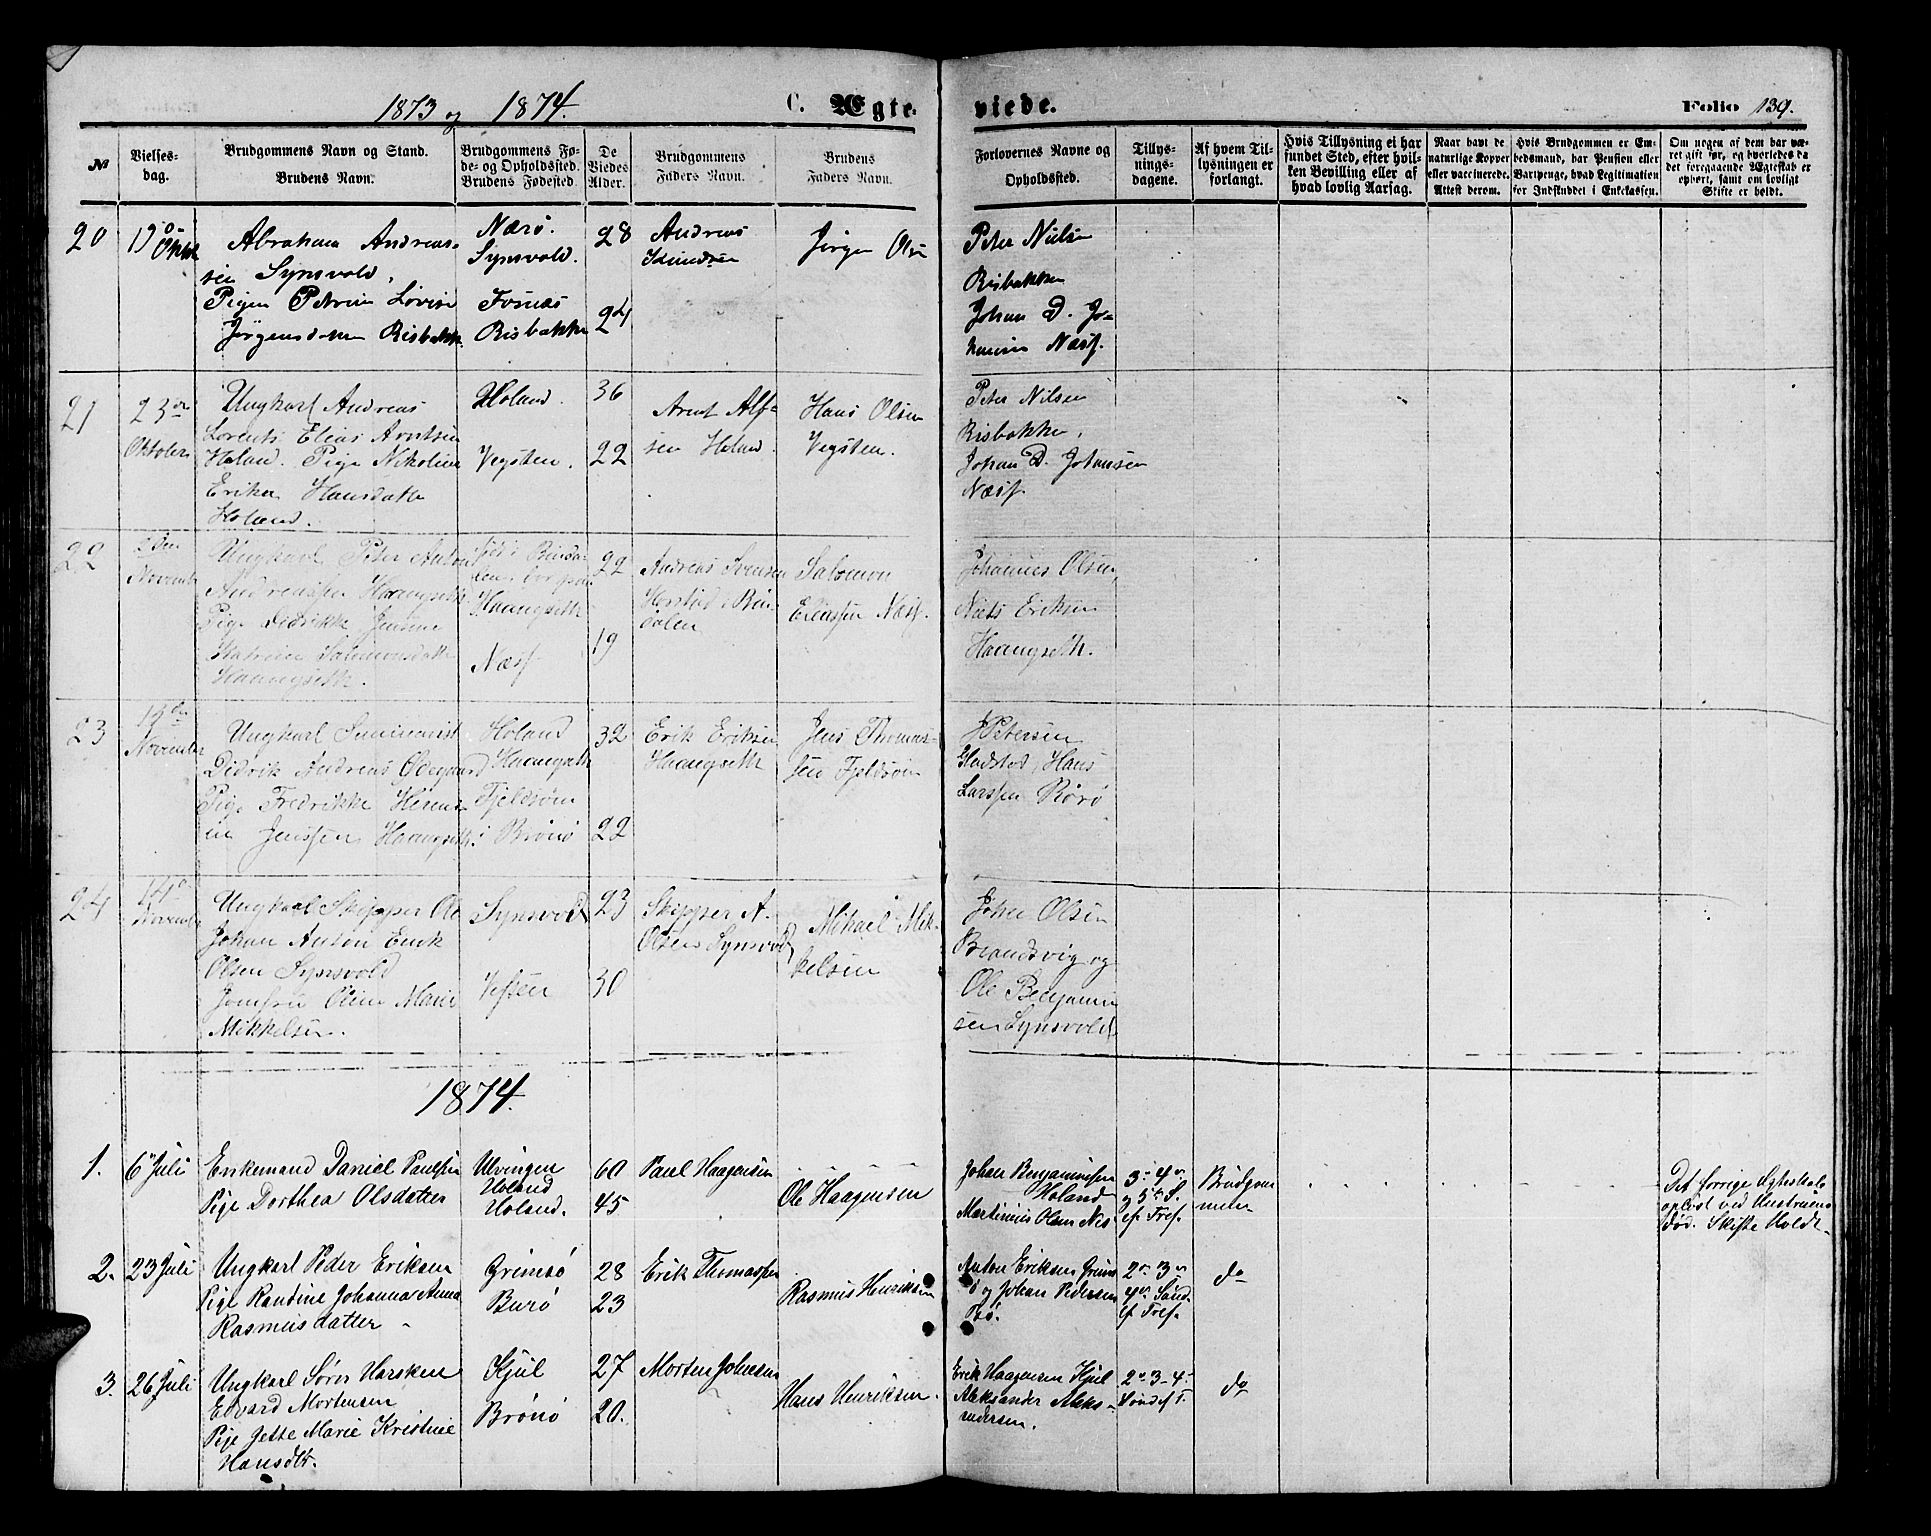 1873 og 1874.
C. Ægte-
viede.
Folio 139.
№
Vielses-
dag.
Brudgommens Navn og Stand.
Brudens Navn.
Brudgommens Fø-
de- og Opholdssted.
Brudens Fødested.
De
Viedes
Alder.
Brudgommens
Faders Navn.
Brudens
Faders Navn.
Forlovernes Navne og
Opholdssted.
Tillys-
nings-
dagene.
Af hvem Til-
lysningen er
forlangt.
Hvis Tillysning ei har
fundet Sted, efter hvil-
ken Bevilling eller af
hvad lovlig Aarsag.
Naar havt de
naturlige Kopper
eller vaccinerede.
Attest derom.
Hvis Brudgommen er Em-
bedsmand, har Pension eller
Vartpenge, hvad Legitimation
for Indskuddet i Enkekassen.
Om nogen af dem har væ-
ret gift før, og hvorledes da
det foregaaende Ægteskab er
ophørt, samt om lovligt
Skifte er holdt.
20
19
Abraham Andreas-
sen Synsvold.
Pigen Petrine Lovise
Jörgensdatter Risbakk.
Nærö.
Synsvold.
Fosnæs
Risbakke
28
24
Andreas
Jörgen Olsen
Peter Nielsen
Risbakken
Johan D. Jo-
hansen Næsf.
21
23de
Oktober
Ungkarl Andreas
Lorents Elias Arntsen
Holand. Pige Nikoline
Erika Hansdatter
Holand.
Holand.
Vegsten.
36
22
Arnt Alf-
sen Holand.
Hans Olsen
Vegsten.
Peter Nilsen
Risbakke.
Johan D. Johansen
Næsf.
22
2den
November
Ungkarl Peter Anton
Andreassen Haangseth
Pige Didrikke Jensine
Katrine Salomonsdatter
Haangseth.
født i Bindda-
len, bor paa
Haangseth
Næsf
22
19
Andreas Svensen
Horstad i Bin-
dalen
Salomon
Eliassen Næsf.
Johannes Olsen,
Niels Eriksen
Haangseth.
23
November
Ungkarl Seminarist
Didrik Andreas Ödegaard
Pige Fredrikke
Jenssen Haangseth.
Holand
Haangseth
Fjeldsöen
i Brönö
32
22
Erik Eriksen
Haangseth
Jens Thomas-
sen Fjeldsöen
Petersen
Gladstad, Hans
Larssen Rörö
24
14de
November
Ungkarl Skipper Ole
Johan Anton Enck
Olsen Synsvold
Jomfru Oline Marie
Mikkelsen.
Synsvold
Vefsen
23
30
Skipper A.
Olsen Synsvold
Mikael Mik-
kelsen
Johan Olsen
Brandsvig og
Ole Benjamin
sen Synsvold
1874.
1.
6 Juli
Enkemand Daniel Paulsen
Pige Dorthea Olsdatter
Ulvingen
Holand
Holand.
60
45
Paul Haagensen
Ole Haagensen
Johan Benjaminsen
Holand
Martinus Olsen Nis
3-4de
og 5te S.
ef. Tref.
Brudgom
men
Det forrige Ægteskab
oplöst ved Hustruens
död. Skifte Holdt.
2.
23 Juli
Ungkarl Peder Eriksen
Pige Randine Johanna Anna
Rasmusdatter
Grimsö
Burö
28
23
Erik Thomassen
Rasmus Henriksen
Anton Eriksen Grims
ö og Johan Pedersen
2den 3de
4de Sönd.
ef. Tref.
do
3.
26 Juli
Ungkarl Sören Harsken
Edvard Mortensen
Pige Jette Marie Kristine
Hansdtr.
Kjul
Brönö
27
20.
Morten Johansen
Hans Henriksen.
Erik Haagensen Kjul
Aleksander Aleks-
andersen.
2-3-4
Sönd ef T.
do